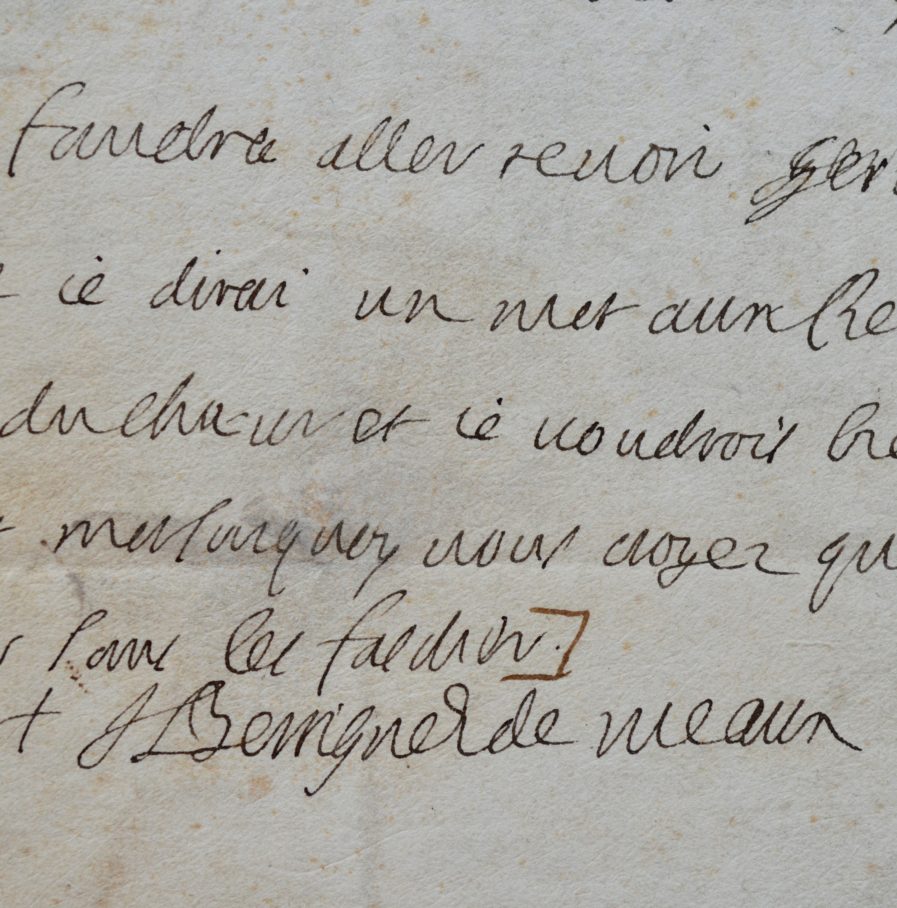 faudra aller revoir Ger
ie dirai un mot aux Re
du chœur et ie voudrois bie
vous croyez qu
sans les fascher.
+ J Benigne E. de meaux